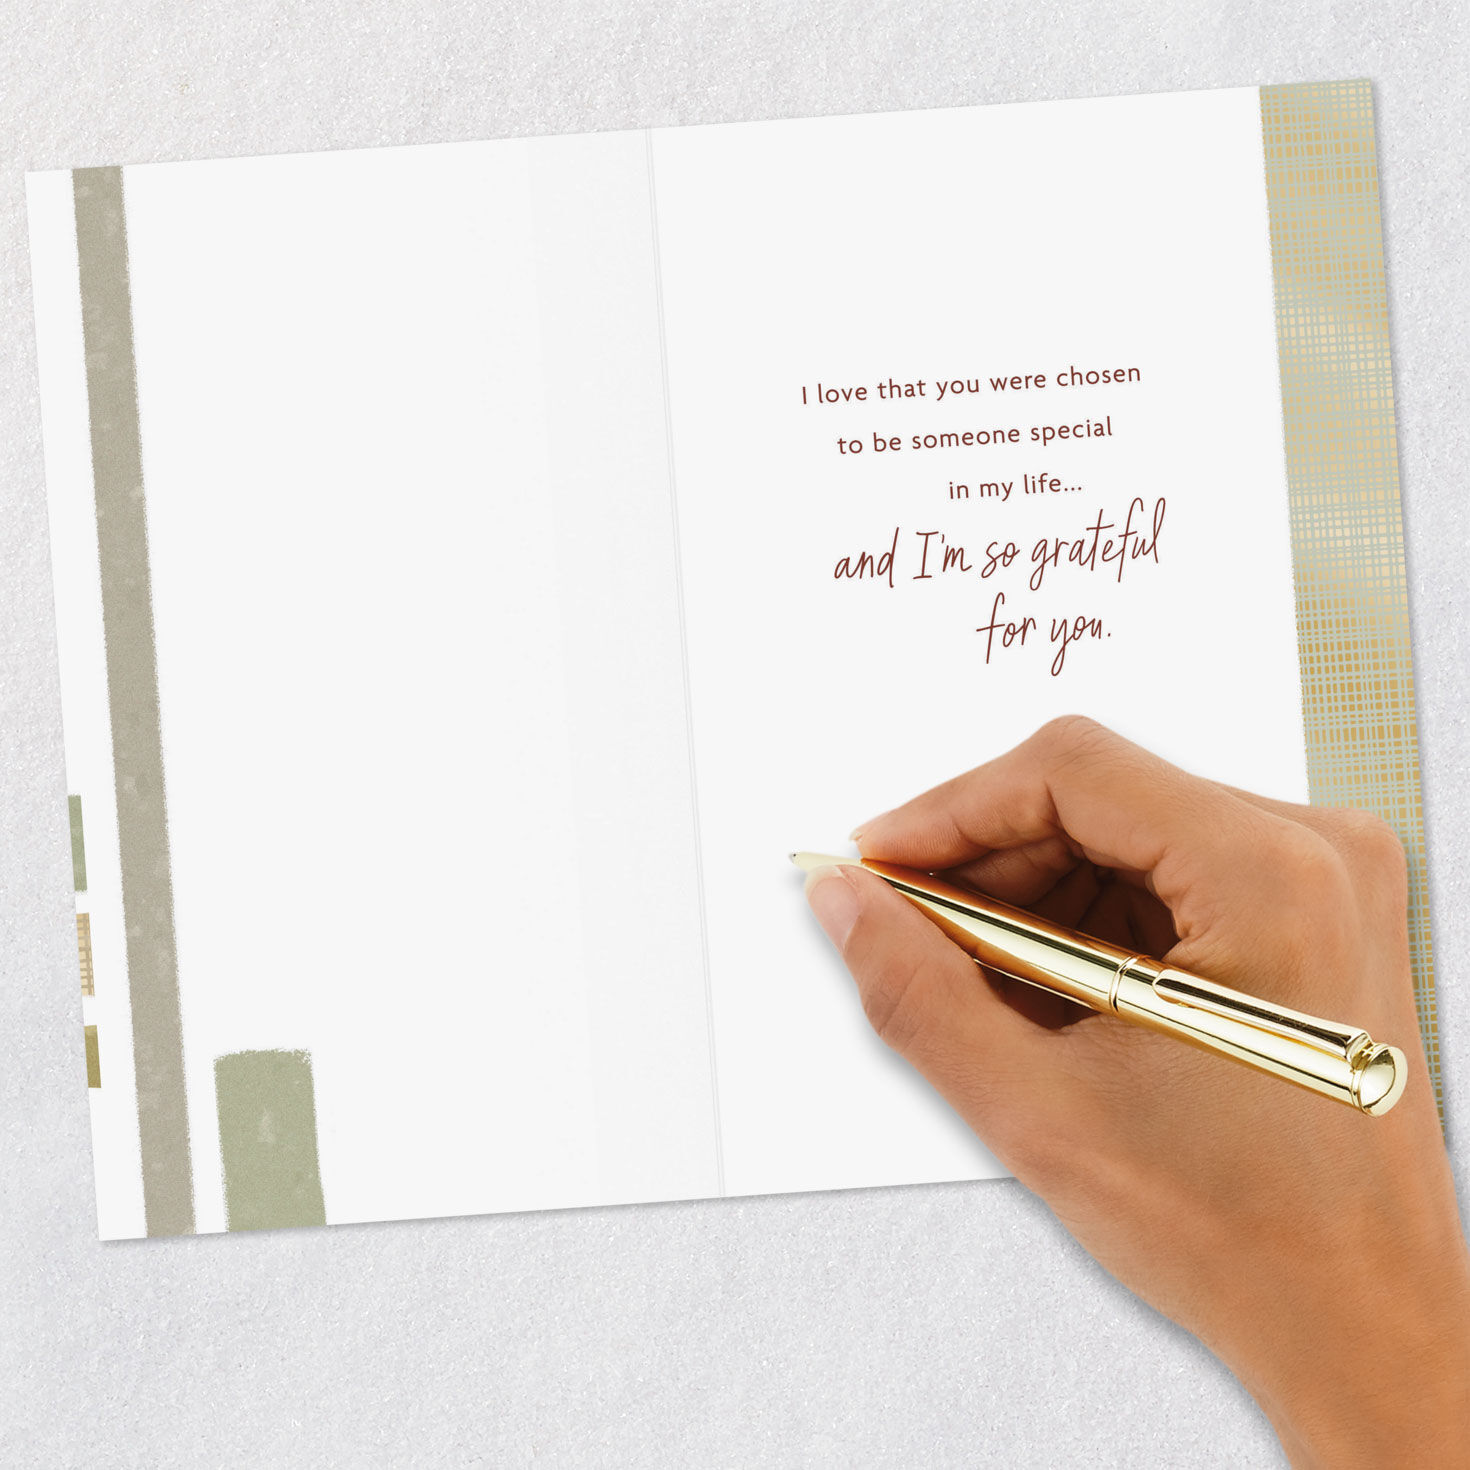 I love that you were chosen
to be someone special
in my life...
and I'm so grateful
for you.